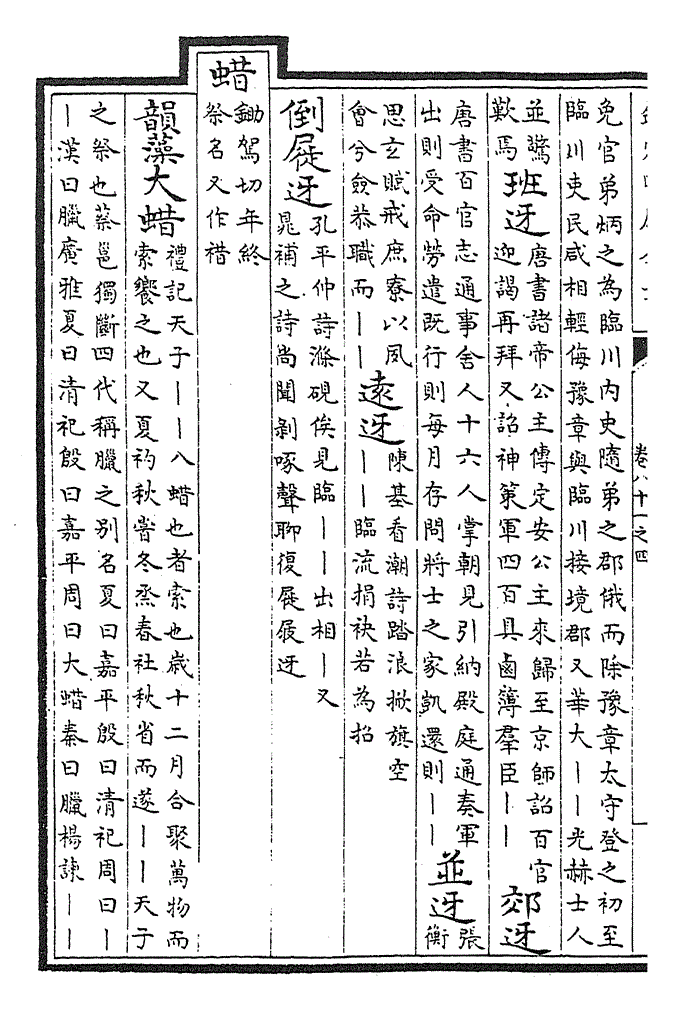 卷八十一之四
免官弟炳之為臨川内史隨弟之郡俄而除豫章太守登之初至
臨川吏民咸相輕侮豫章與臨川接境郡又華大丨丨光赫士人
並驚
歎焉
班迓
唐書諸帝公主傳定安公主來歸至京師詔百官
迎謁再拜又詔神策軍四百具鹵簿羣臣丨丨
郊迓
唐書百官志通事舍人十六人掌朝見引納殿庭通奏軍
出則受命勞遣既行則每月存問將士之家凱還則丨丨
並迓
張
衡
思玄賦戒庶寮以夙
會兮僉恭職而丨丨
遠迓
陳基看潮詩踏浪掀旗空
丨丨臨流捐袂若為招
倒屣迓
孔平仲詩滌硯俟見臨丨丨出相丨又
晁補之詩尚聞剥啄聲聊復屣屐迓
蜡
鋤駕切年終
祭名又作䄍
韻藻大蜡
禮記天子丨丨八蜡也者索也歲十二月合聚萬物而
索饗之也又夏礿秋嘗冬烝春社秋省而遂丨丨天子
之祭也蔡邕獨斷四代稱臘之别名夏曰嘉平殷曰清祀周曰丨
丨漢曰臘廣雅夏曰清祀殷曰嘉平周曰大蜡秦曰臘楊諫丨丨